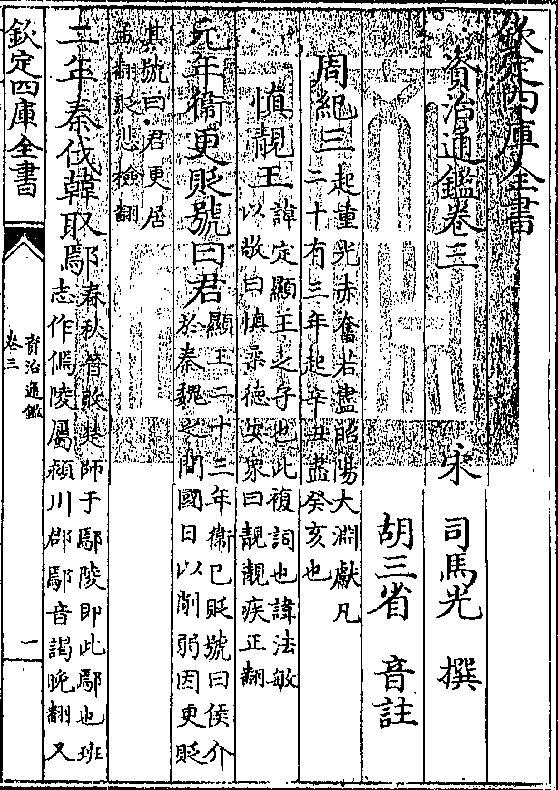 欽定四庫全書
資治通鑑卷三
宋 司馬光 撰
胡三省 音註
周紀三起重光赤奮若盡昭陽大淵獻凡
二十有三年起辛丑盡癸亥也
慎靚王諱定顯王之子也此複詞也諱法敏
以敬曰慎柔德安衆曰靚靚疾正翻
元年衞更貶號曰君顯王二十三年衞已貶號曰侯介
於秦魏之間國日以削弱因更貶
其號曰君更居
孟翻貶悲檢翻
二年秦伐韓取鄢春秋晉敗楚師于鄢陵即此鄢也班
志作傿陵屬潁川郡鄢音謁晚翻又
欽定四庫全書
資治通鑑
卷三
一